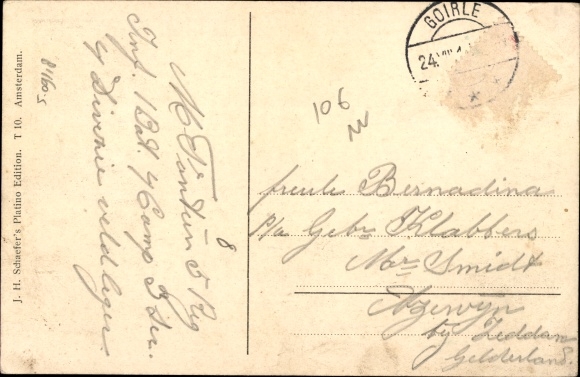 J. H. Schaefer's Platino Edition. T 10. Amsterdam.
8
5 Reg
Inf. 1 Bat 4 Comp 3 Sec.
4 Divisie veldleger
GOIRLE
24.VIII.1
106
freule Bernadina
p/a Gebr Klabbers
Mr Smidt
Azewyn
by Zeddam
Gelderland